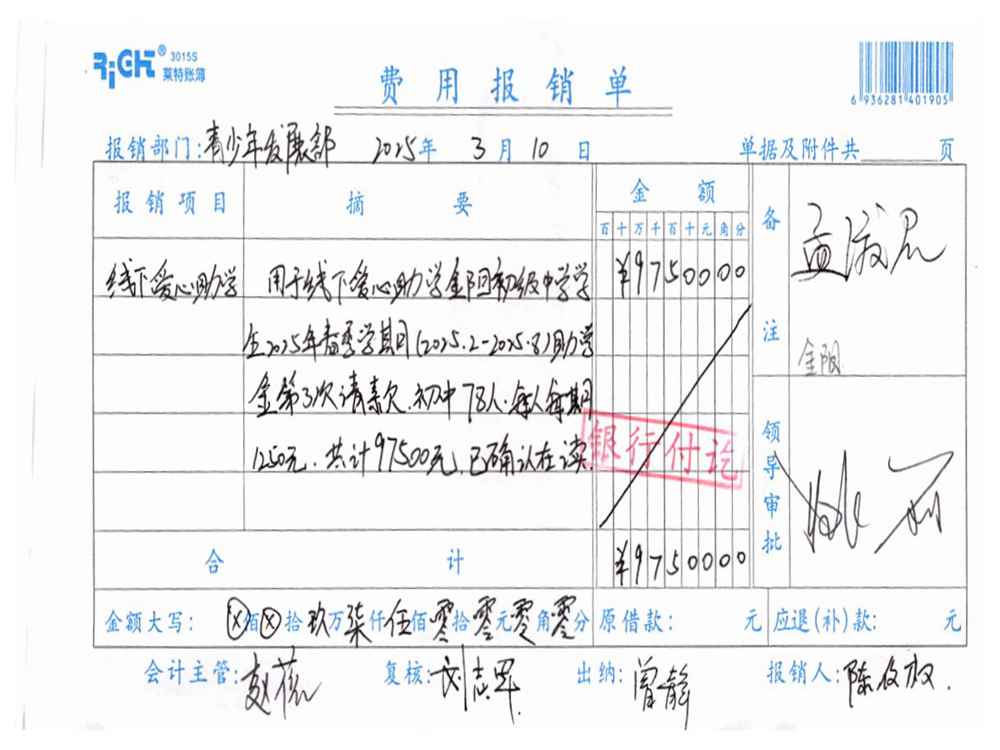 RiCH® 3015S
莱特账簿
费用报销单
6 936281 401905
报销部门:青少年发展部 2025年 3月 10日 单据及附件共 页
报销项目 摘要 金额 备注
百十万千百十元角分
线下爱心助学 用于线下爱心助学金阳回初级中学学 ¥9750000
生2025年春季学期(2025.2-2025.8)助学
金第3次请款,初中78人,每人每期
1250元,共计97500元,已确认在读.
银行付讫
金阳
领导审批
合计 ¥9750000
金额大写: ⊗佰⊗拾玖万柒仟伍佰零拾零元零角零分 原借款: 元 应退(补)款: 元
会计主管: 复核: 出纳:曾静 报销人: